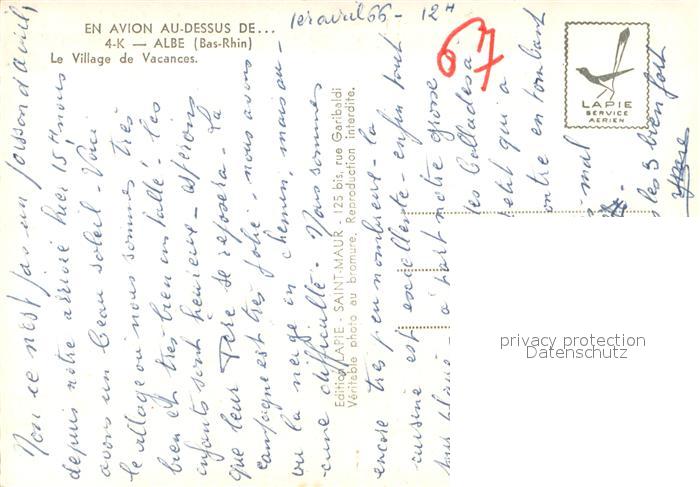 EN AVION AU-DESSUS DE...
4-K — ALBE (Bas-Rhin)
Le Village de Vacances.
1er avril 66 - 12H
67
LAPIE
SERVICE
AERIEN
Non ce n'est pas un poisson d'avril,
depuis notre arrivée hier 15H nous
avons un beau soleil - Voici
le village où nous sommes très
bien et très bien installé - les
enfants sont heureux - espérons
que leur Père se reposera - La
campagne est très jolie - nous avons
vu la neige en chemin, mais au-
cune difficulté. Nous sommes
Edition LAPIE - SAINT-MAUR - 125 bis, rue Garibaldi
Véritable photo au bromure. Reproduction interdite.
encore très peu nombreux - la
cuisine est excellente - enfin tout
à part notre grosse
les ballades à
petit qui a
contre en tombant
mal
les 3 bien fort
privacy protection
Datenschutz